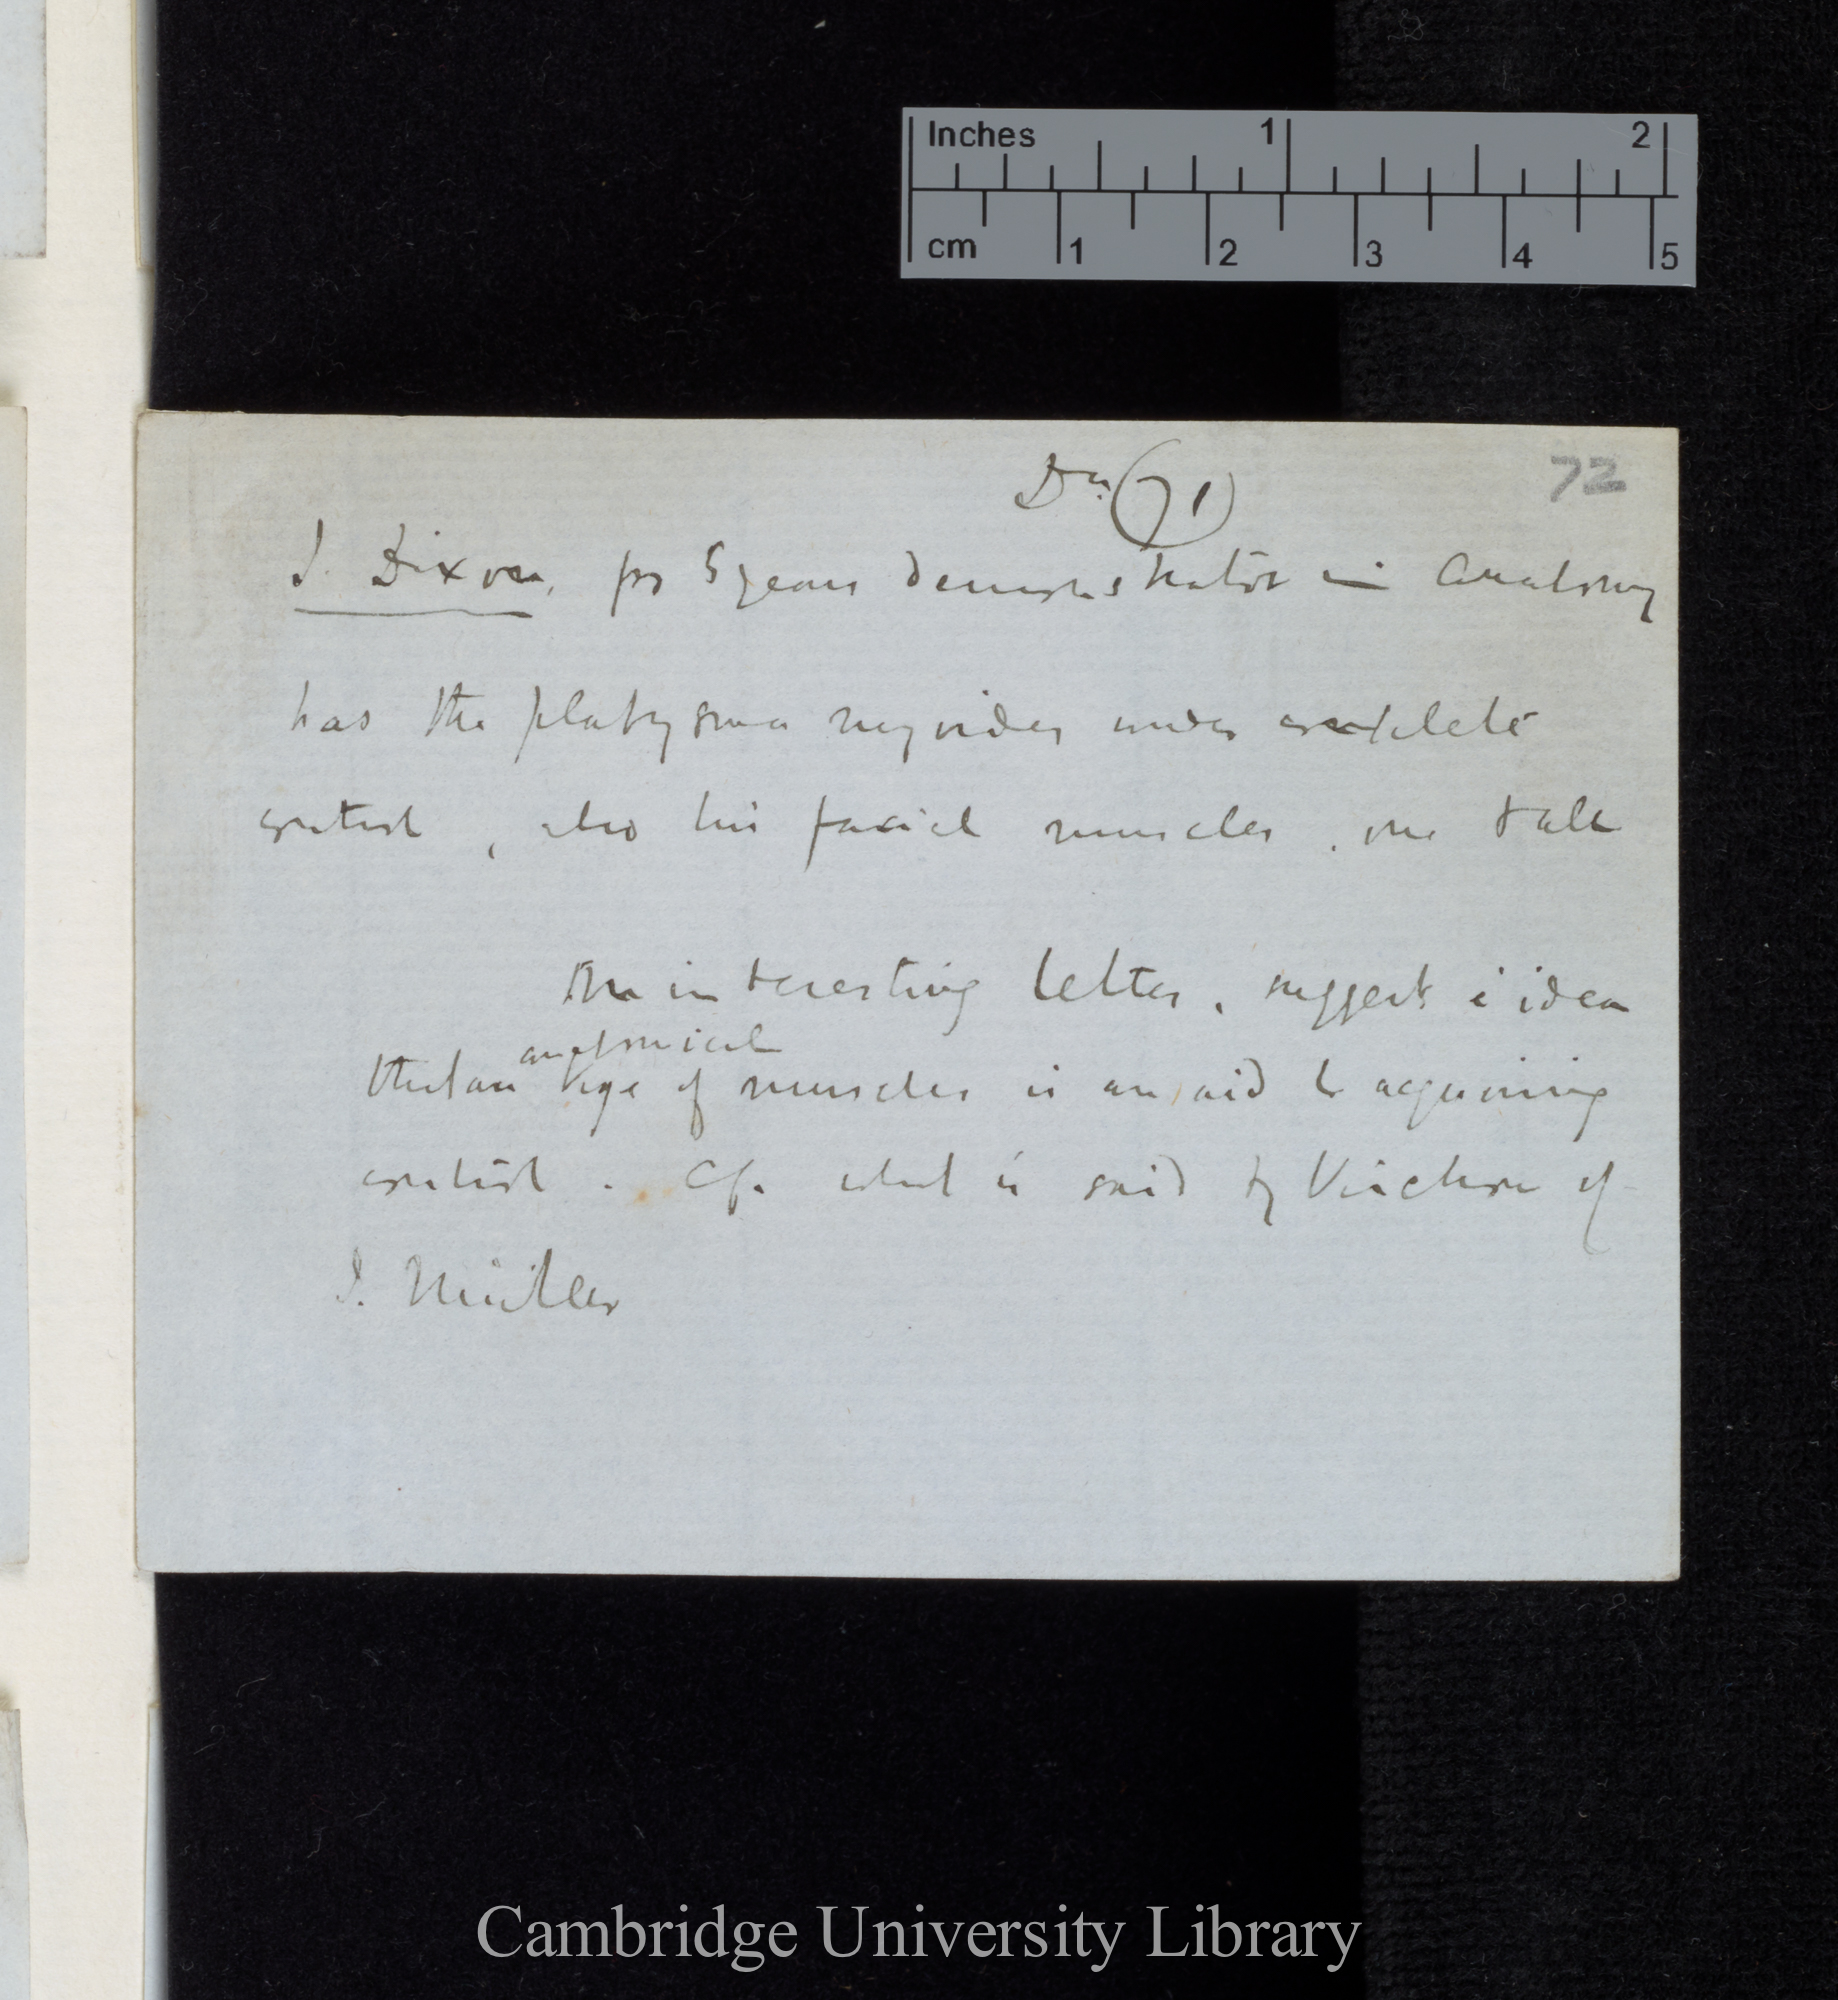 Inches 1 2
cm 1 2 3 4 5
72
(71)
J. Dixon, for 5 years demonstrator in Anatomy
has the platysma myoides under complete
control, also his facial muscles. one
An interesting letter. suggests ÷ idea
that an anatomical of muscles is an aid to acquiring
control. Cf. what is said by Virchow of
J. Müller
Cambridge University Library